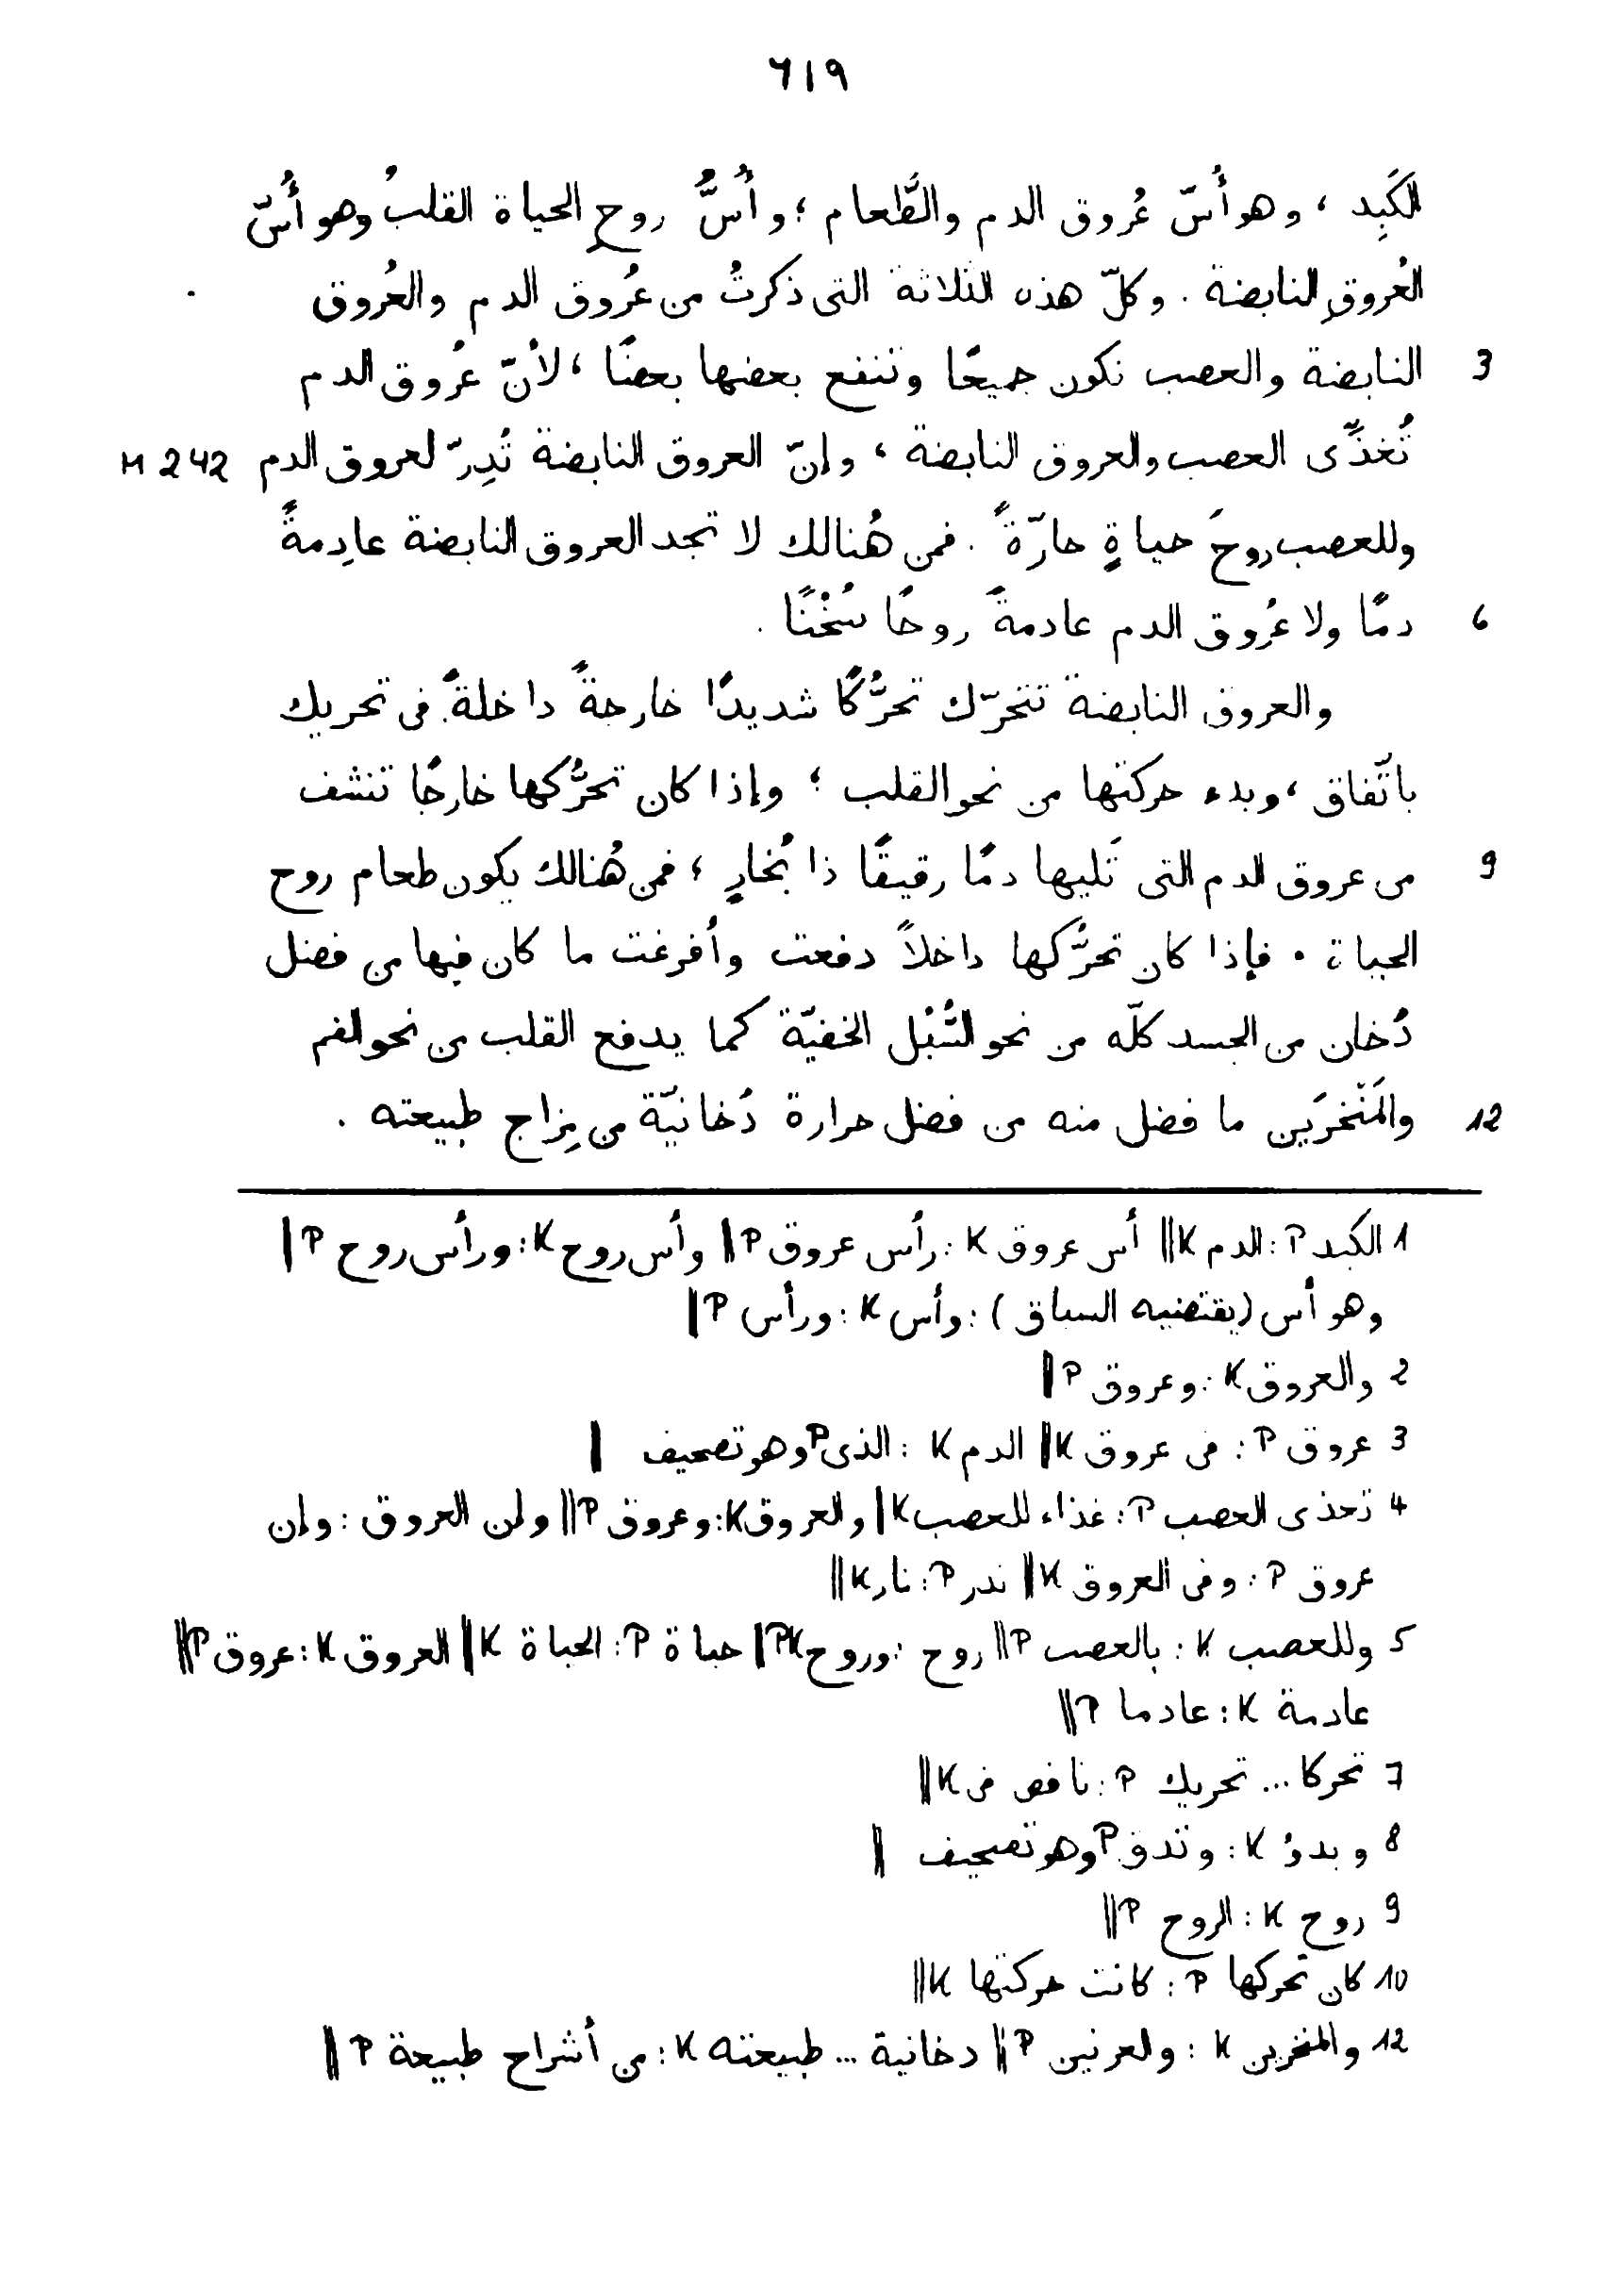 ٦١٩
الكَبِد ، وهو أُسّ عُروق الدم والطَّعام ؛ وأُسُّ روحِ الحياة القلبُ وهو أُسّ
العُروقِ النابضة . وكلّ هذه الثلاثة التى ذكرتُ من عُروق الدم والعُروق
3 النابضة والعصب تكون جميعًا وتنفع بعضها بعضًا ، لأنّ عُروق الدم
تُغذّى العصب والعروق النابضة ، وإنّ العروق النابضة تُدِرّ لعروق الدم M 242
وللعصب روحَ حياةٍ حارّةً . فمن هُنالك لا تجد العروق النابضة عادِمةً
6 دمًا ولا عُروق الدم عادمةً روحًا سُخْنًا .
والعروق النابضة تتحرّك تحرُّكًا شديدًا خارجةً داخلةً فى تحريك
باتّفاق ، وبدء حركتها من نحو القلب ؛ وإذا كان تحرُّكها خارجًا تنشف
9 من عروق الدم التى تَليها دمًا رقيقًا ذا بُخارٍ ، فمن هُنالك يكون طعام روح
الحياة . فإذا كان تحرُّكها داخلاً دفعت وأفرغت ما كان فيها من فضل
دُخان من الجسد كلّه من نحو السُّبْل الخفيّة كما يدفع القلب من نحو الفم
12 والمَنْخرَين ما فضل منه من فضل حرارة دُخانيّة من مِزاج طبيعته .
1 الكبد P : الدم K || أس عروق K : رأس عروق P || وأس روح K : ورأس روح P ||
وهو أس (يقتضيه السياق) : وأس K : ورأس P ||
2 والعروق K : وعروق P ||
3 عروق P : فى عروق K || الدم K : الذى P وهو تصحيف ||
4 تحذى العصب P : غذاء للعصب K || والعروق K : وعروق P || ولن العروق : وإن
عروق P : وفى العروق K || تدر P : نار K ||
5 وللعصب K : بالعصب P || روح : وروح PK || حياة P : الحياة K || العروق K : عروق P ||
عادمة K : عادما P ||
7 تحركا ... تحريك P : ناقص فى K ||
8 وبدؤ K : وتدق P وهو تصحيف ||
9 روح K : الروح P ||
10 كان تحركها P : كانت حركتها K ||
12 والمنخرين K : والعرنين P || دخانية ... طبيعته K : من أشراح طبيعة P ||